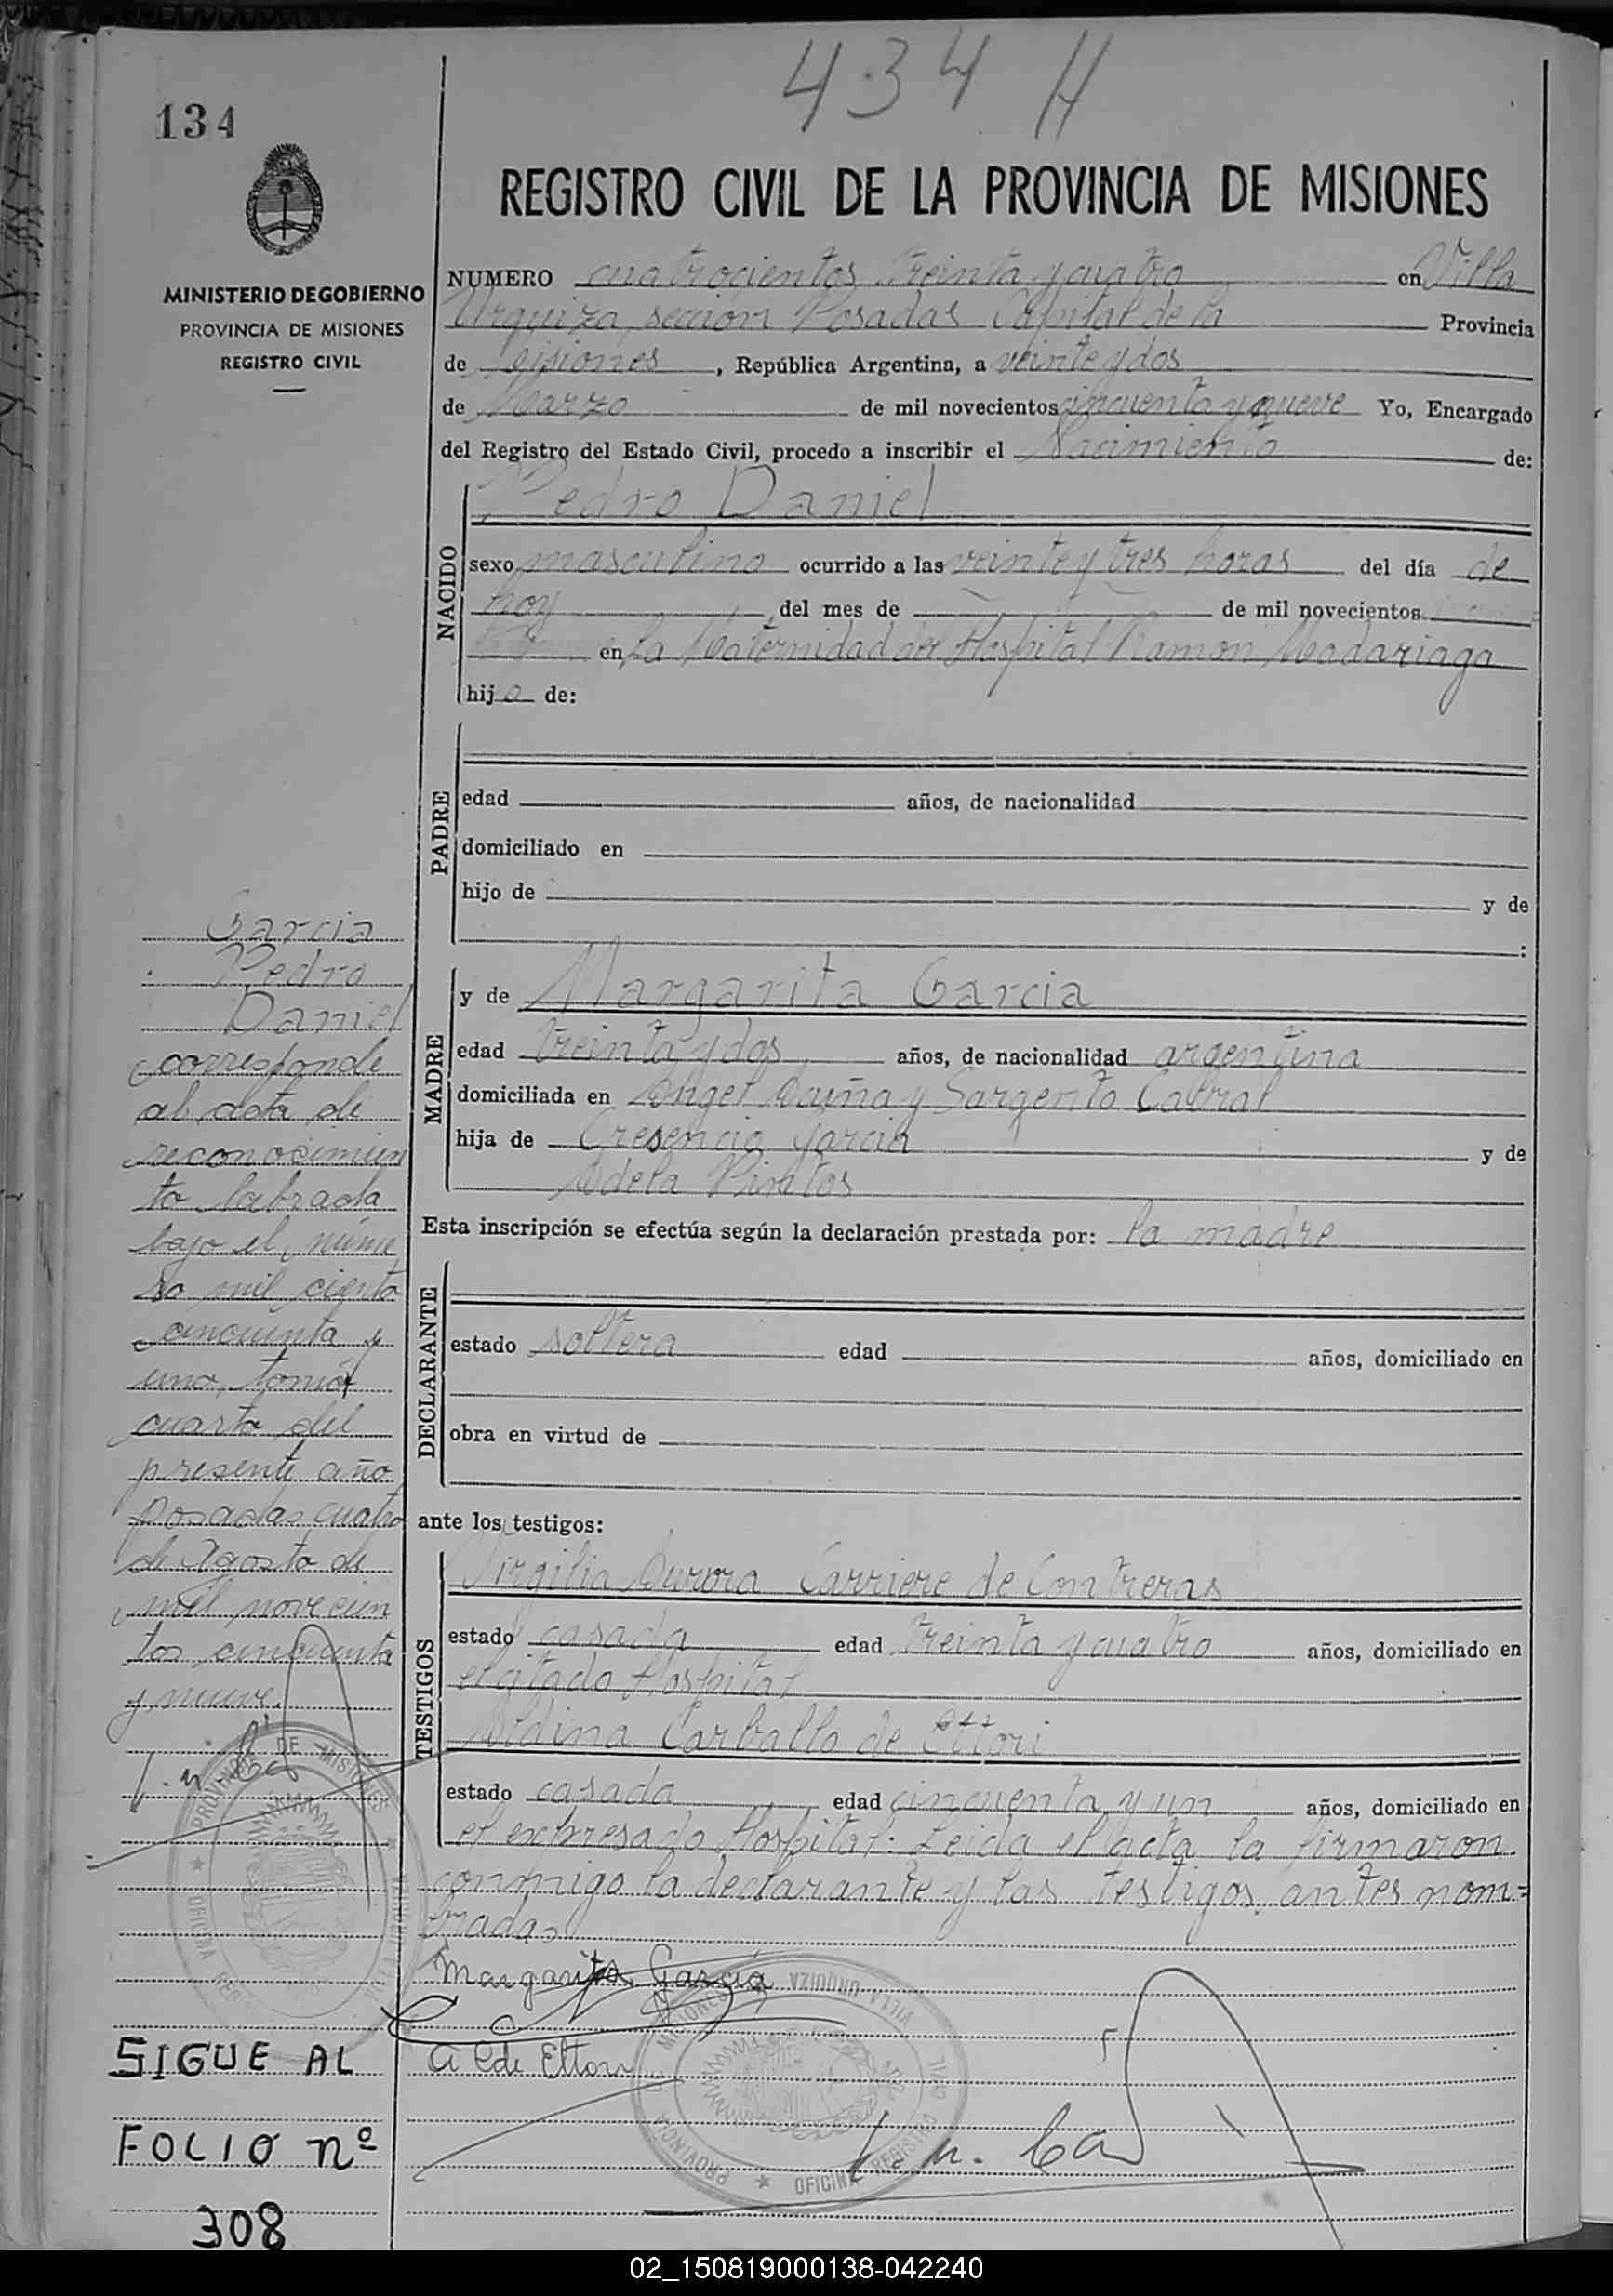 434 H
134
REGISTRO CIVIL DE LA PROVINCIA DE MISIONES
MINISTERIO DE GOBIERNO
PROVINCIA DE MISIONES
REGISTRO CIVIL
NUMERO cuatrocientos treinta y cuatro en Villa
Urquiza, seccion Posadas Capital de la Provincia
de Misiones, República Argentina, a veinte y dos
de Marzo de mil novecientos cincuenta y nueve Yo, Encargado
del Registro del Estado Civil, procedo a inscribir el Nacimiento de:
NACIDO
Pedro Daniel
sexo masculino ocurrido a las veinte y tres horas del día de
hoy del mes de de mil novecientos
en La Maternidad del Hospital Ramon Madariaga
hijo de:
PADRE
edad años, de nacionalidad
domiciliado en
hijo de y de
:
MADRE
y de Margarita Garcia
edad treinta y dos años, de nacionalidad argentina
domiciliada en Angel Acuña y Sargento Cabral
hija de Cresencio Garcia y de
Adela Pintos
Esta inscripción se efectúa según la declaración prestada por: la madre
DECLARANTE
estado soltera edad años, domiciliado en
obra en virtud de
ante los testigos:
TESTIGOS
Virgilia Aurora Carriere de Contreras
estado casada edad treinta y cuatro años, domiciliado en
el citado Hospital
Aldina Carballo de Ettori
estado casada edad cincuenta y un años, domiciliado en
el expresado Hospital: Leida el acta la firmaron
conmigo la declarante y las testigos antes nom=
bradas
Margarita Garcia
A C de Ettori
Garcia
Pedro
Daniel
corresponde
al acta de
reconocimien
to labrada
bajo el núme
ro mil ciento
cincuenta y
uno, tomo
cuarto del
presente año
Posadas cuatro
de Agosto de
mil novecien
tos cincuenta
y nueve.
PROVINCIA DE MISIONES
OFICINA
VILLA URQUIZA
PROVINCIA MISIONES
OFICINA REGISTRO CIVIL
SIGUE AL
FOLIO nº
308
02_150819000138-042240